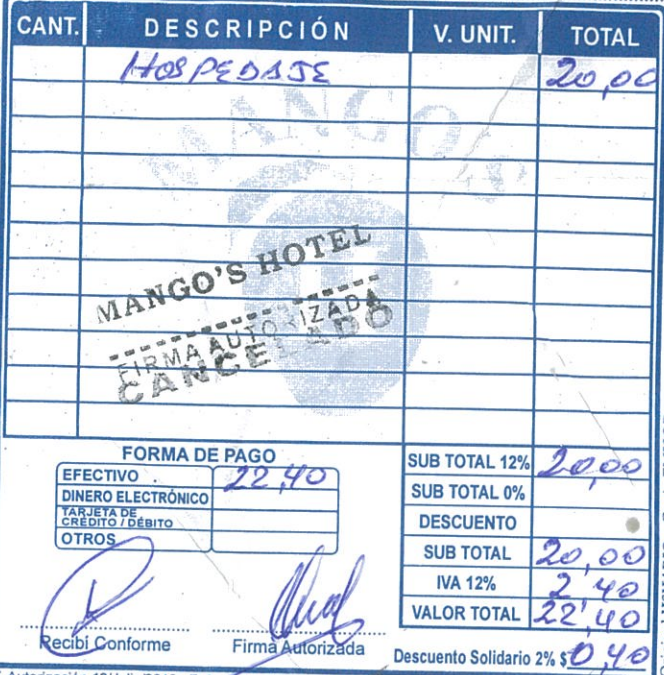 CANT. DESCRIPCIÓN V. UNIT. TOTAL
HOSPEDAJE 20,00
MANGO'S
MANGO'S HOTEL
FIRMA AUTORIZADA
CANCELADO
FORMA DE PAGO
EFECTIVO 22,40
DINERO ELECTRÓNICO
TARJETA DE
CRÉDITO / DÉBITO
OTROS
SUB TOTAL 12% 20,00
SUB TOTAL 0%
DESCUENTO
SUB TOTAL 20,00
IVA 12% 2,40
VALOR TOTAL 22,40
Recibí Conforme Firma Autorizada
Descuento Solidario 2% $ 0,40